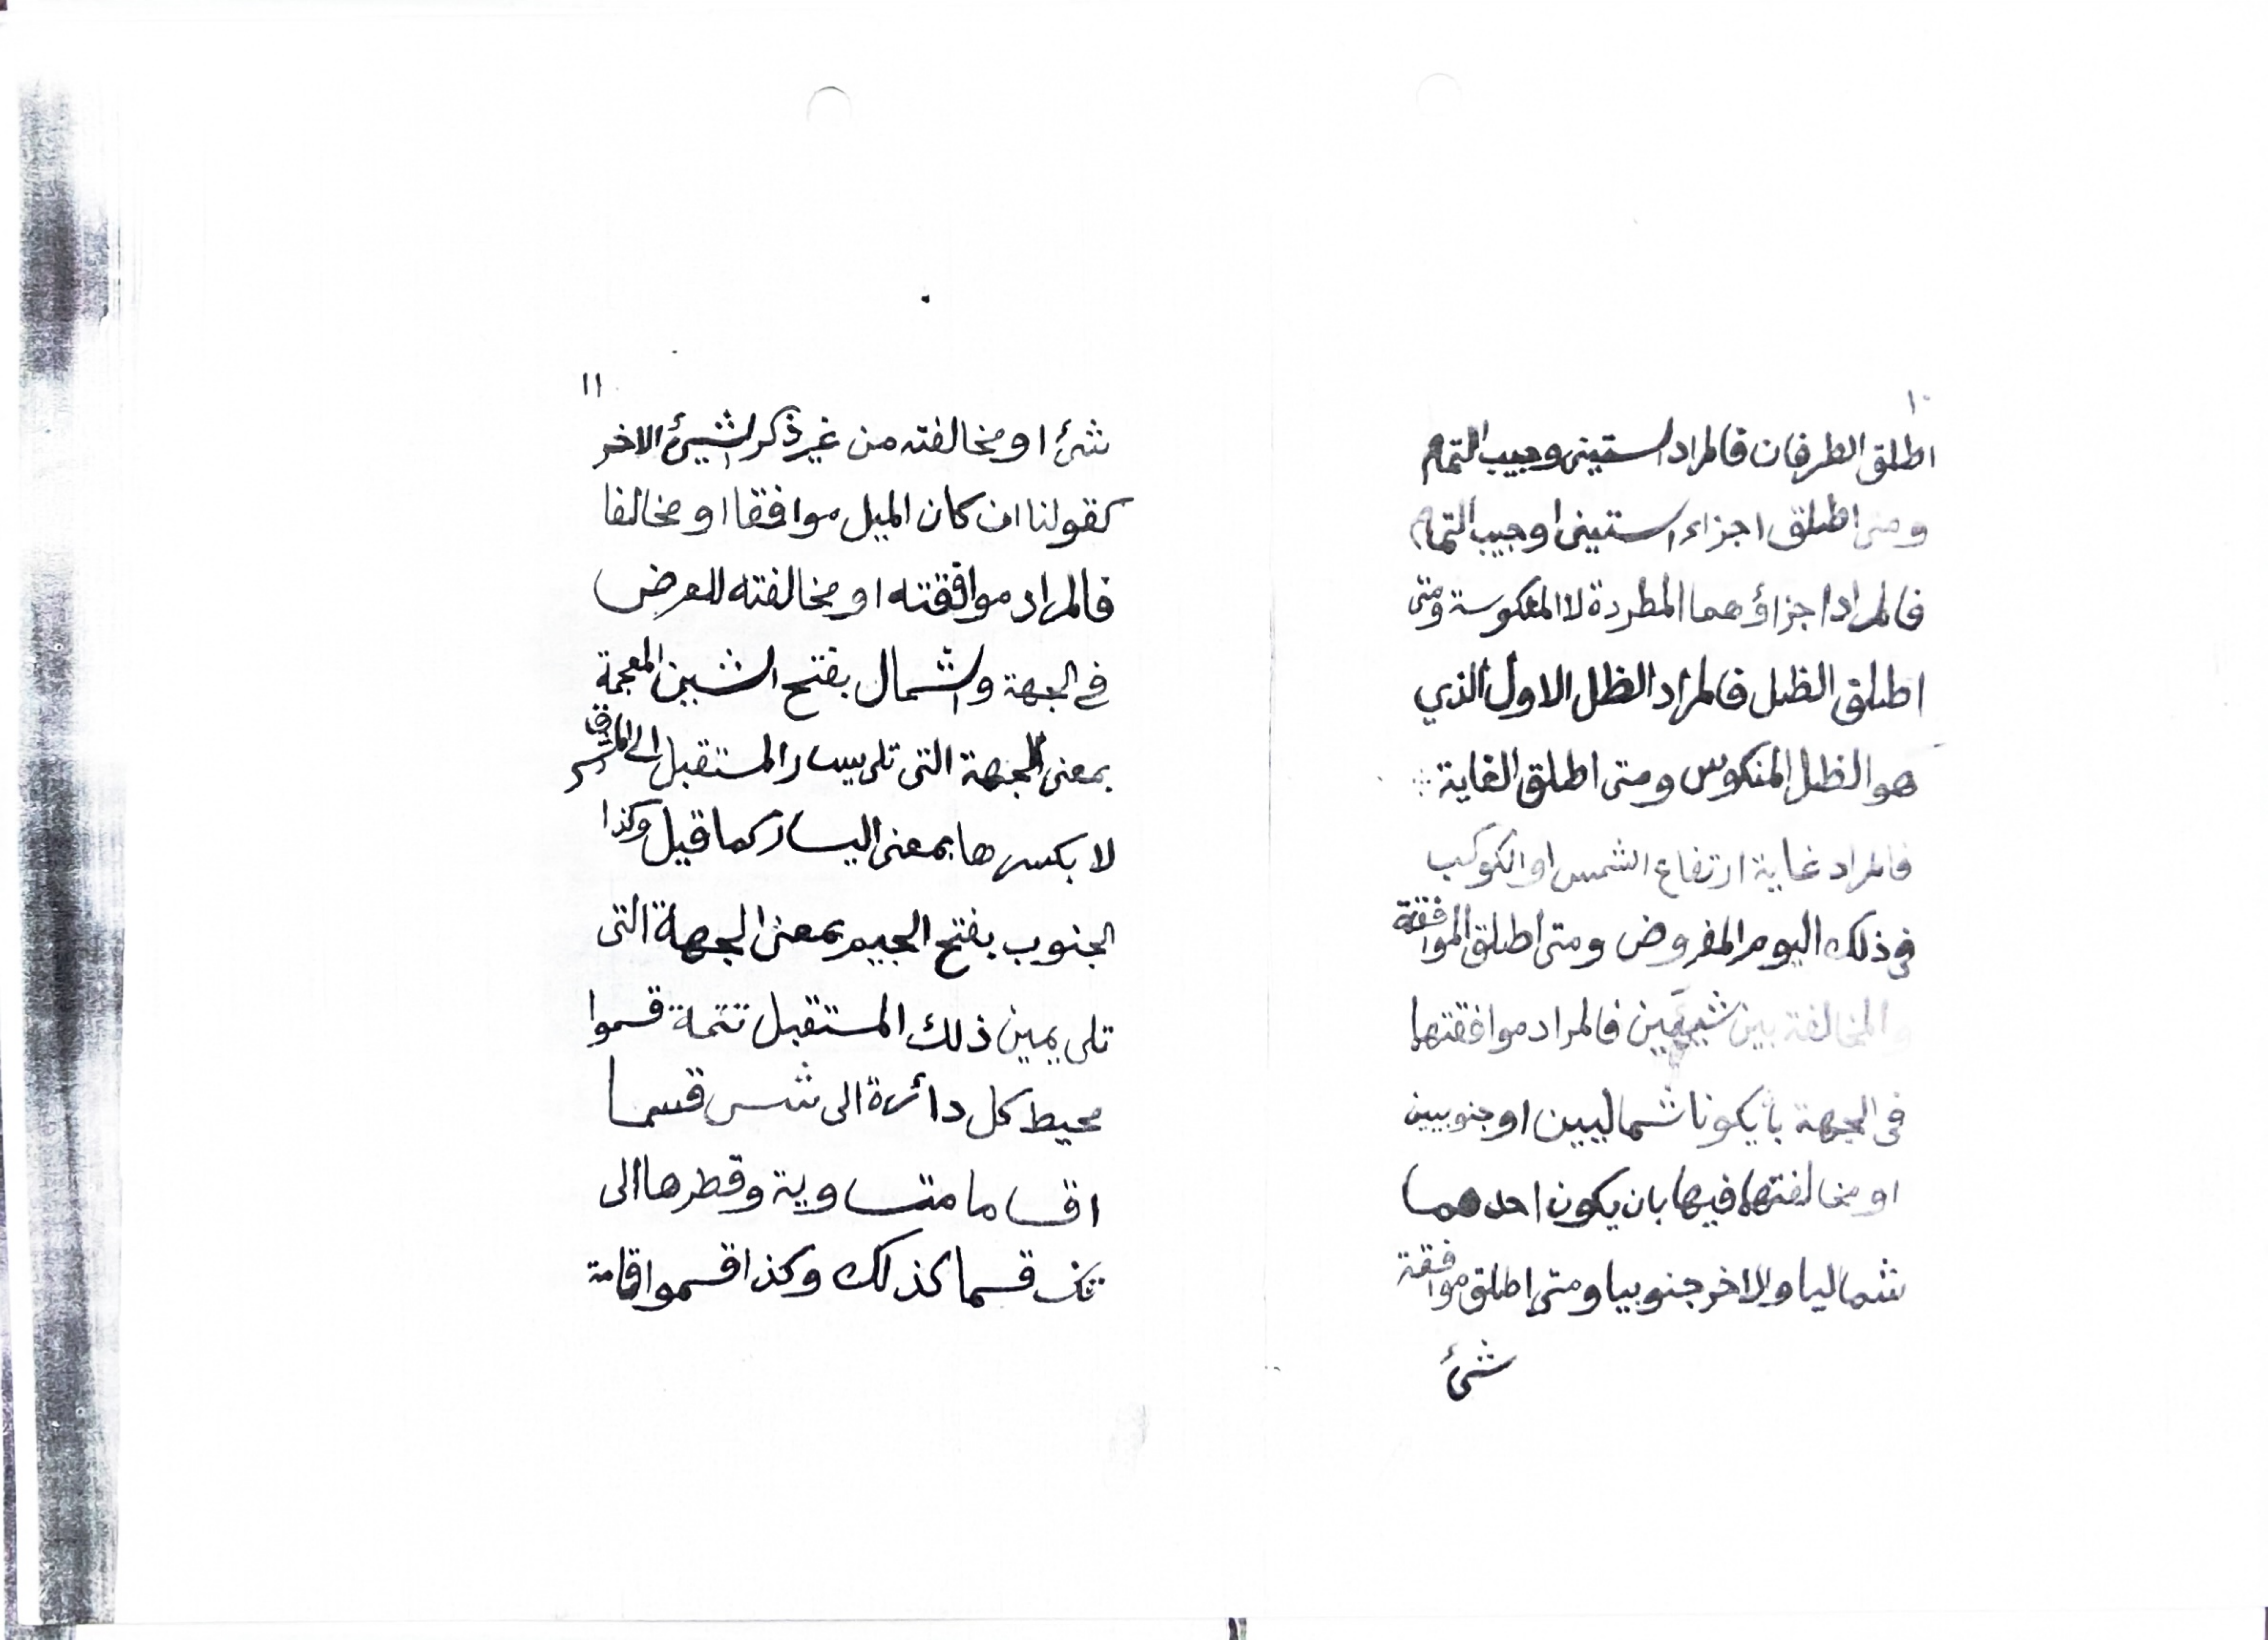 ١٠
اطلق الطرفان فالمراد الستينى وجيب التمام
ومتى اطلق اجزاء الستينى او جيب التمام
فالمراد اجزاؤهما المطردة لا المعكوسة ومتى
اطلق الظل فالمراد الظل الاول الذي
هو الظل المنكوس ومتى اطلق الغاية
فالمراد غاية ارتفاع الشمس او الكوكب
فى ذلك اليوم المفروض ومتى اطلق الموافقة
والمخالفة بين شيئين فالمراد موافقتهما
فى الجهة بأن يكونا شماليين او جنوبيين
او مخالفتهما فيها بان يكون احدهما
شماليا والاخر جنوبيا ومتى اطلق موافقة
شئ
١١
شئ او مخالفته من غير ذكر الشيئ الاخر
كقولنا ان كان الميل موافقا او مخالفا
فالمراد موافقته او مخالفته للعرض
فے الجهة والشمال بفتح الشين المعجمة
بمعنى الجهة التى تلى يسار المستقبل الى المشرق
لا بكسرها بمعنى اليسار كما قيل وكذا
الجنوب بفتح الجيم بمعنى الجهة التى
تلى يمين ذلك المستقبل تتمة قسموا
محيط كل دائرة الى شس قسما
اقساما متساوية وقطرها الى
قسما كذلك وكذا قسموا قامة